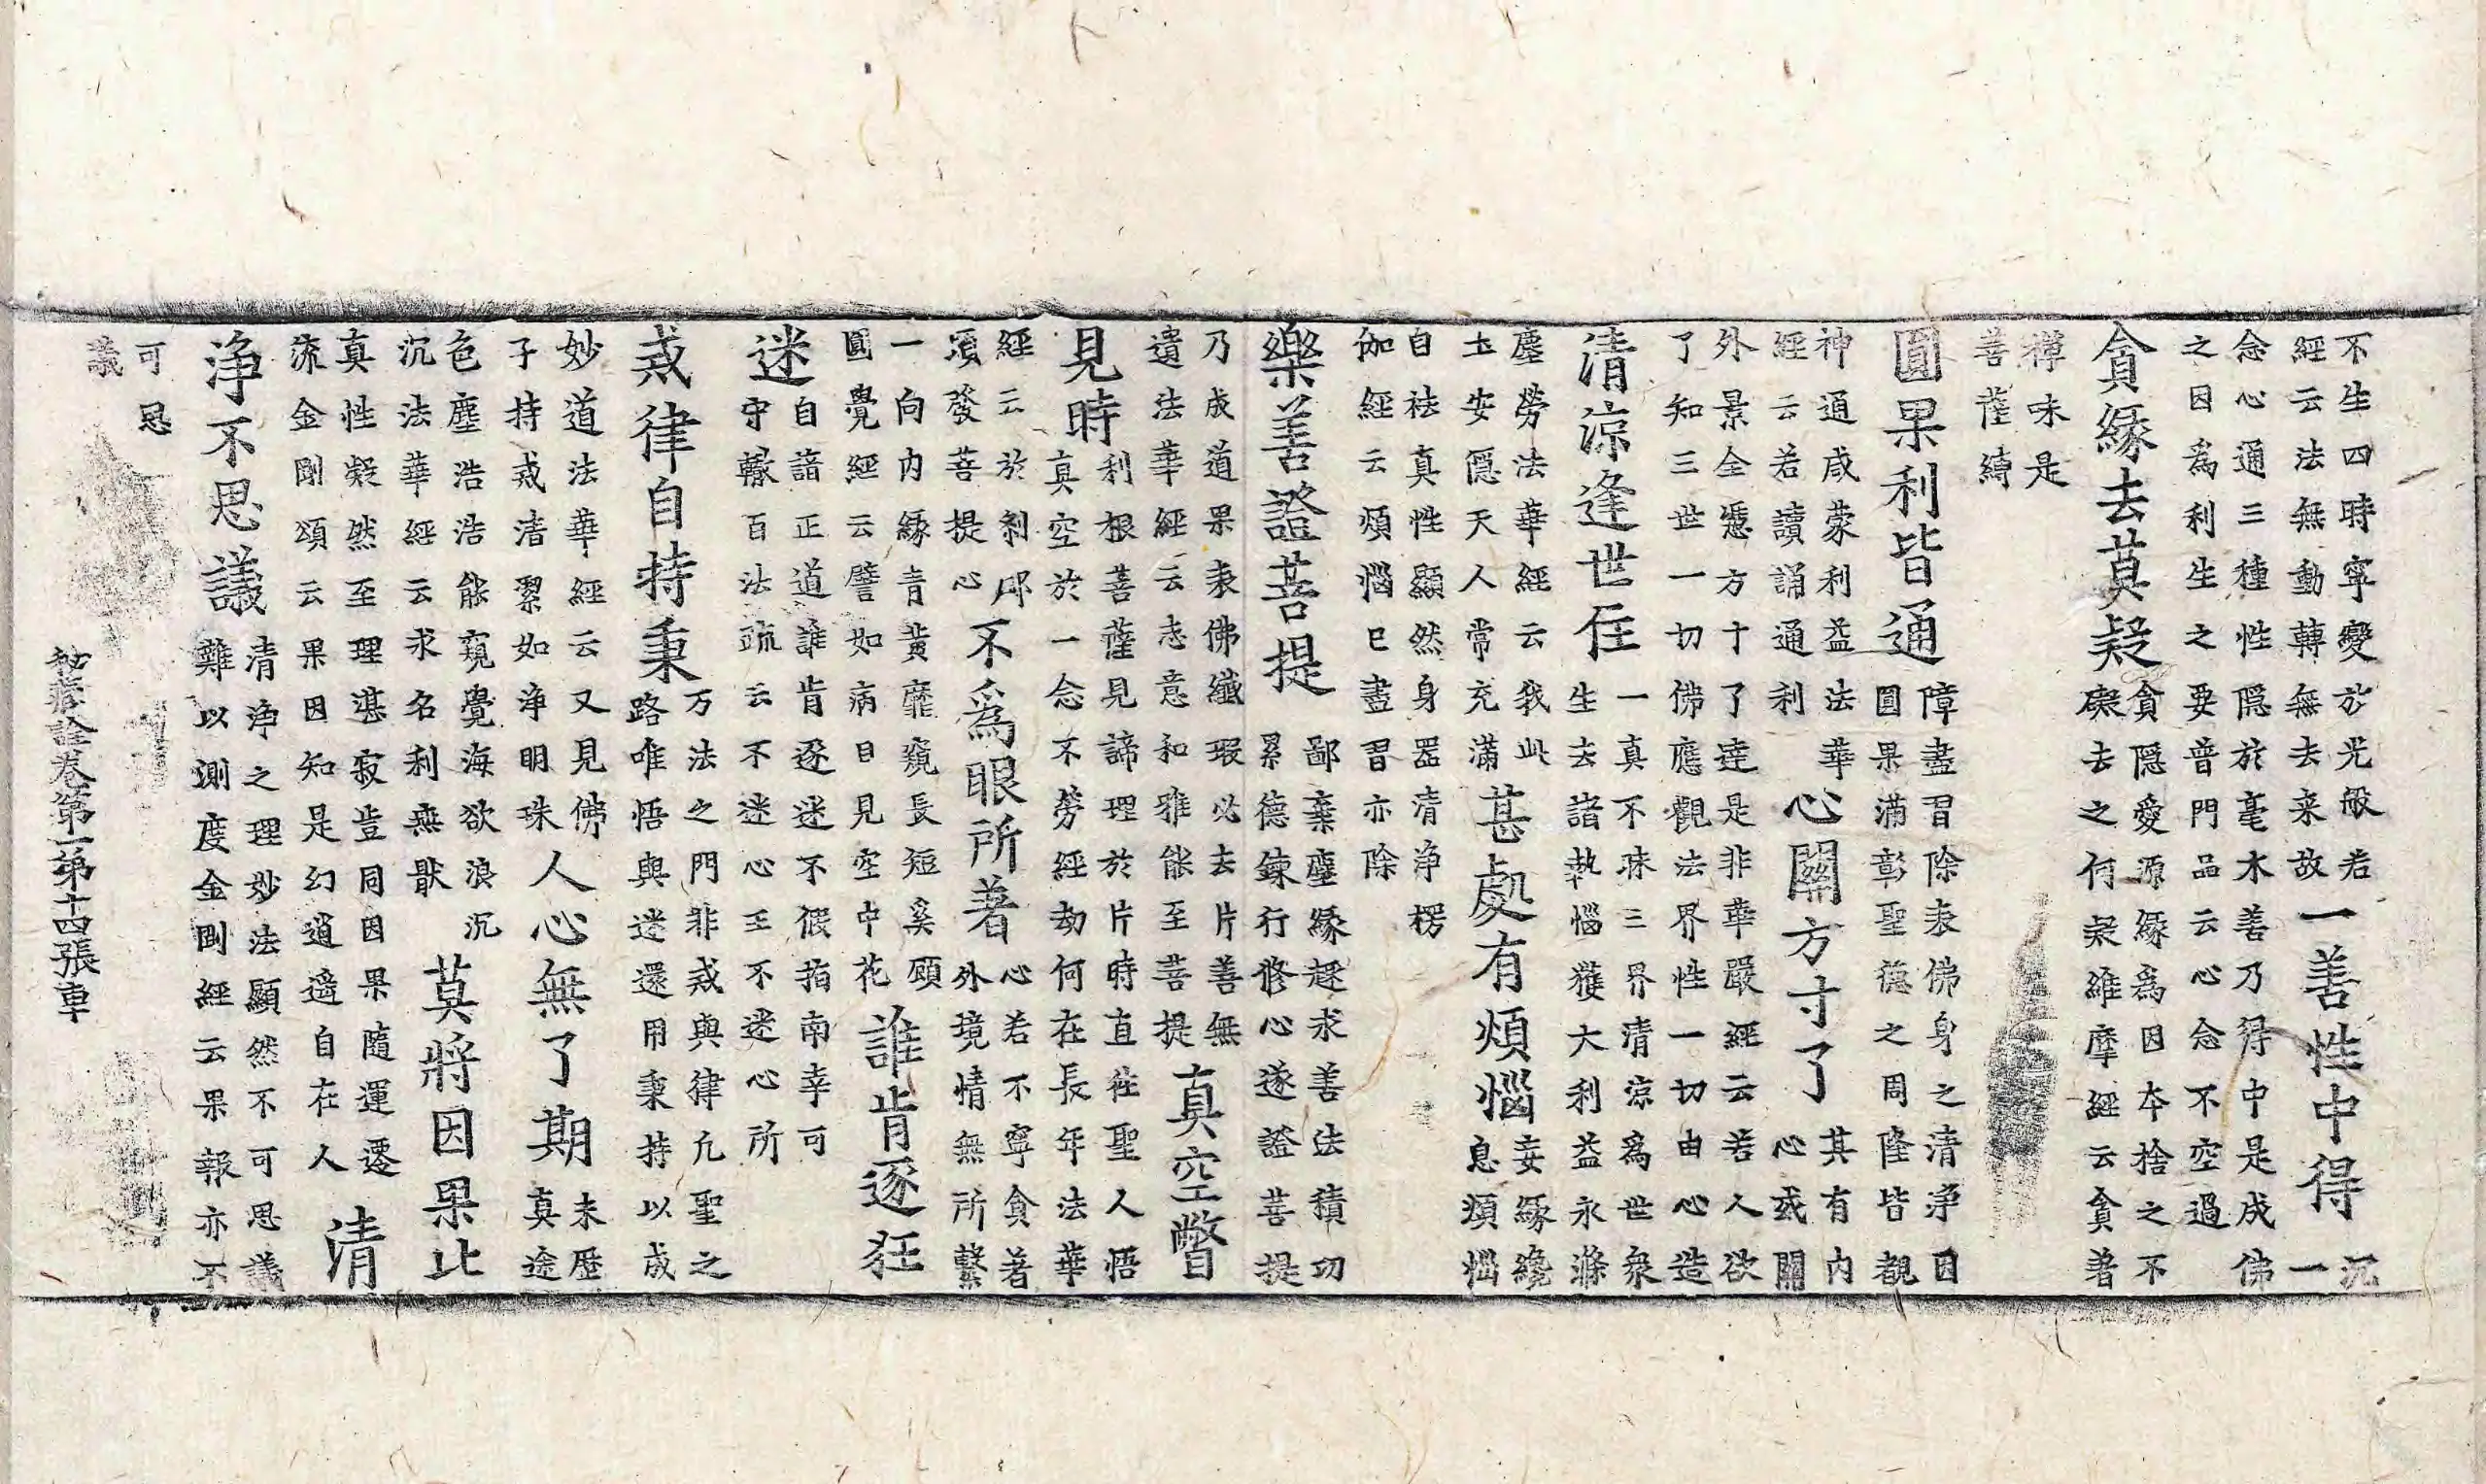 不生四時寧變於光般若
經云法無動轉無去来故
一善性中得
沉
一
念心通三種性隠於毫木善乃得中是成佛
之因為利生之要普門品云心念不空過
貪緣去莫疑
貪隠愛源緣為因本捨之不
礙去之何疑維摩經云貪著
禅味是
菩薩縛
圓果利皆通
障盡習除表佛身之清淨因
圓果滿彰聖德之周隆皆覩
神通咸蒙利益法華
經云若讀誦通利
心開方寸了
其有内
心或開
外景全慿方寸了達是非華嚴經云若人欲
了知三世一切佛應觀法界性一切由心造
清涼逢世住
一真不昧三界清涼為世衆
生去諸執惱獲大利益永滌
塵勞法華經云我此
土安隠天人常充滿
甚處有煩惱
妄緣纔
息煩惱
自袪真性顯然身器清淨楞
伽經云煩惱已盡習亦除
樂善證菩提
鄙棄塵緣趍求善法積功
累德鍊行修心遂證菩提
乃成道果表佛纖瑕必去片善無
遺法華經云志意和雅能至菩提
真空瞥
見時
利根菩薩見諦理於片時直往聖人悟
真空於一念不勞經劫何在長年法華
經云於剎那
頃發菩提心
不為眼所著
心若不寧貪著
外境情無所繫
一向内緣青黄靡窺長短奚顧
圓覺經云譬如病目見空中花
誰肯逐狂
迷
自諳正道誰肯逐迷不假指南幸可
守轍百法疏云不迷心王不迷心所
戒律自持秉
万法之門非戒與律凡聖之
路唯悟與迷還用秉持以成
妙道法華經云又見佛
子持戒清絜如淨明珠
人心無了期
未歴
真途
色塵浩浩能窺覺海欲浪沉
沉法華經云求名利無猒
莫將因果比
真性凝然至理湛寂豈同因果隨運遷
流金剛頌云果因知是幻逍遥自在人
清
淨不思議
清淨之理妙法顯然不可思議
難以測度金剛經云果報亦不
可思
議
秘藏詮卷第一第十四張車